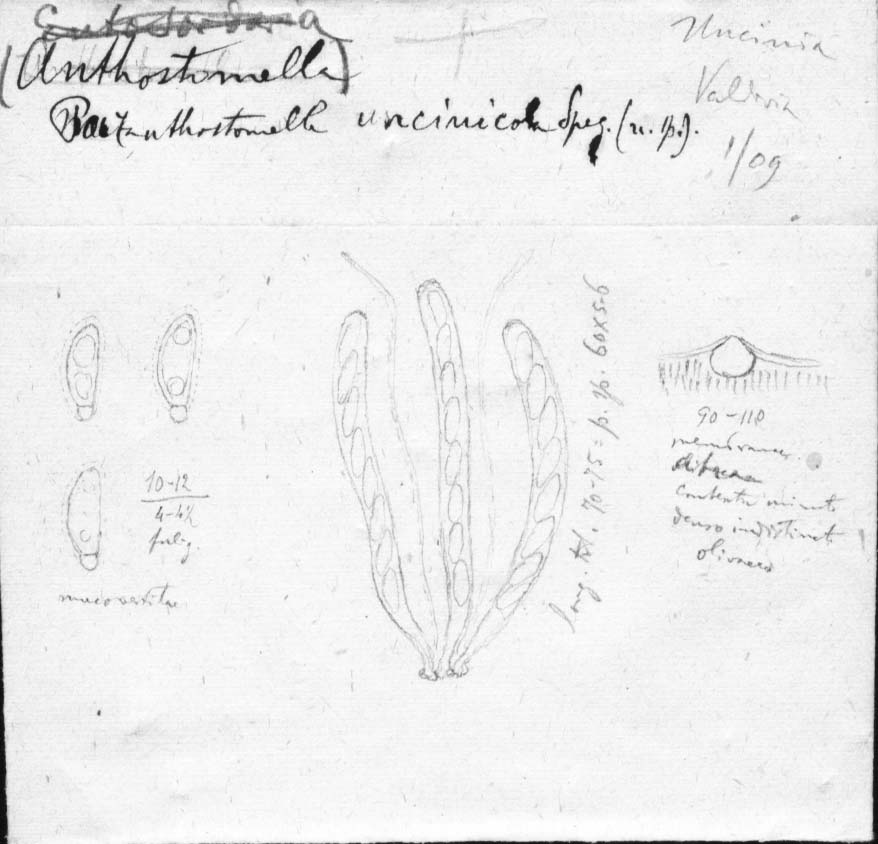 Entosordaria
(Anthostomella)
Paranthostomella uncinicola Speg. (n. sp.).
Uncinia
Valdivia
1/09
10-12
4-4½
fulig.
mucovestitae
long. tot. 70-75 = p. sp. 60x5-6
90-110
membranac.
contextu minut
denso indistinct
olivaceo